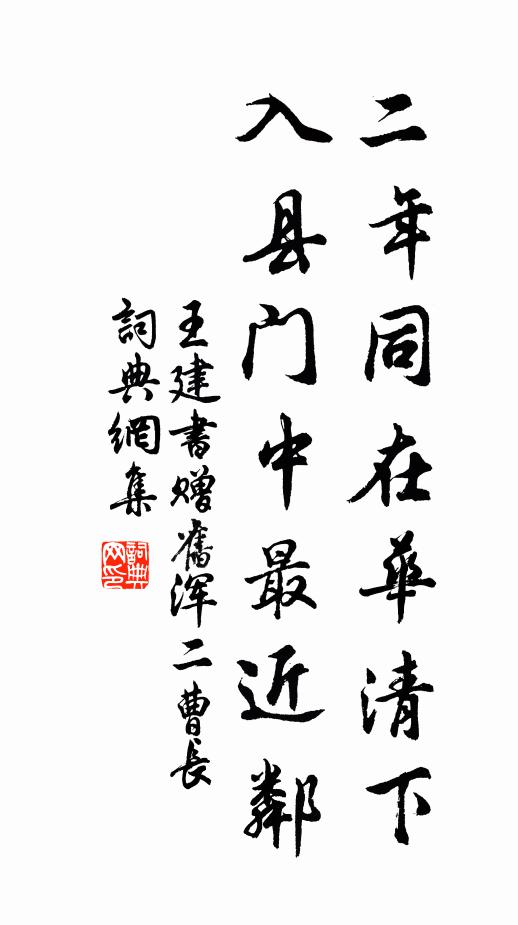 二年同在華清下
入县门中最近鄰
王建書赠舊浑二曹長
詞典網集
詞典
网印